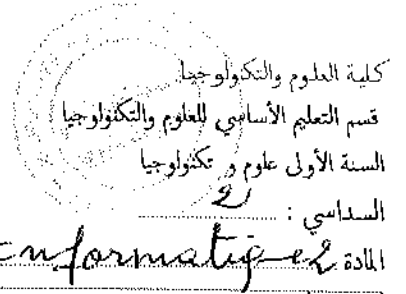 كلية العلوم والتكنولوجيا
قسم التعليم الأساسي للعلوم والتكنولوجيا
السنة الأولى علوم و تكنولوجيا
السداسي : 2
المادة Informatique 2